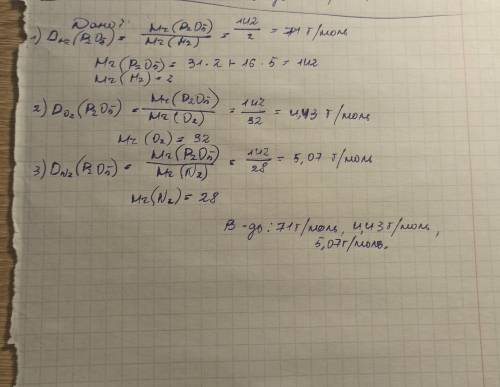 Дано:
1) D_H₂(P₂O₅) = Mr(P₂O₅) / Mr(H₂) = 142 / 2 = 71 г/моль
Mr(P₂O₅) = 31 · 2 + 16 · 5 = 142
Mr(H₂) = 2
2) D_O₂(P₂O₅) = Mr(P₂O₅) / Mr(O₂) = 142 / 32 = 4,43 г/моль
Mr(O₂) = 32
3) D_N₂(P₂O₅) = Mr(P₂O₅) / Mr(N₂) = 142 / 28 = 5,07 г/моль
Mr(N₂) = 28
В-дь: 71 г/моль, 4,43 г/моль,
5,07 г/моль.